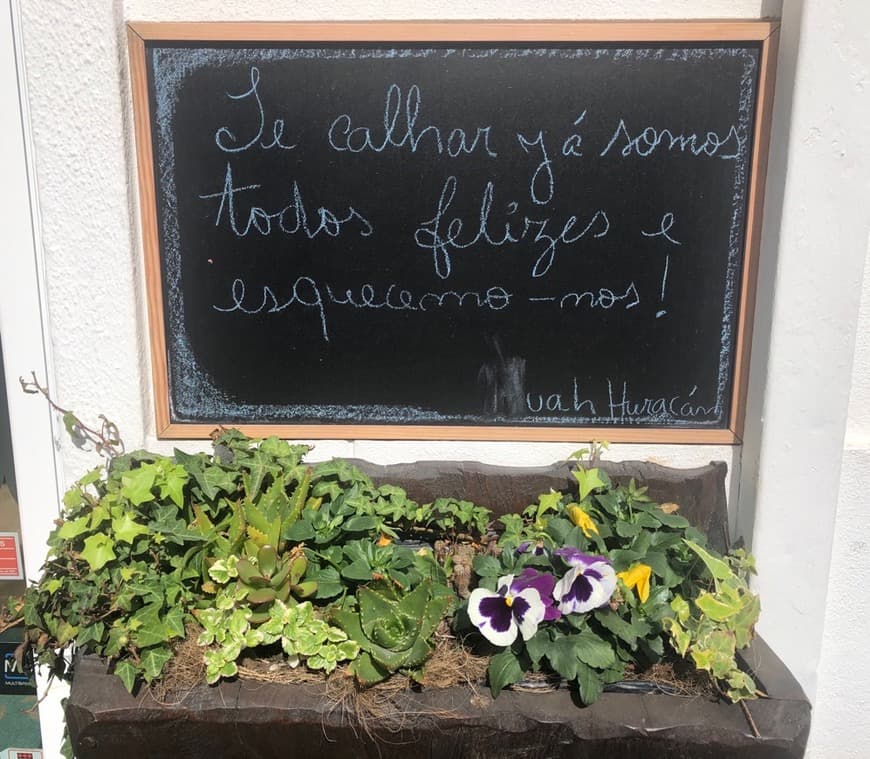 Se calhar já somos
todos felizes e
esquecemo-nos!
uah Huracán